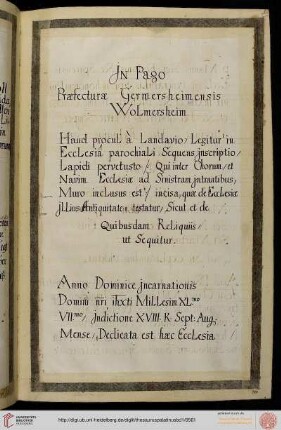 IN Pago
Præfecturæ Germersheimensis
Wolmersheim
Haud procul à Landavio/ Legitur in
Ecclesia parochiali Sequens inscriptio/
Lapidi pervetusto/ Qui inter Chorum/ et
Navim Ecclesiæ ad Sinistram intrantibus/
Muro inclusus est/ incisa, quæ de Ecclesiæ
illius Antiquitate testatur/ Sicut et de
Quibusdam Reliquiis/
ut Sequitur.
Anno Dominicæ incarnationis
Domini nri Millesim XL.mo
VII.mo/ Indictione XVIII. K Sept: Aug.
Mense/ Dedicata est hæc Ecclesia
http://digi.ub.uni-heidelberg.de/diglit/thesauruspalatinusbd1/0563
UNIVERSITÄTS-
BIBLIOTHEK
HEIDELBERG